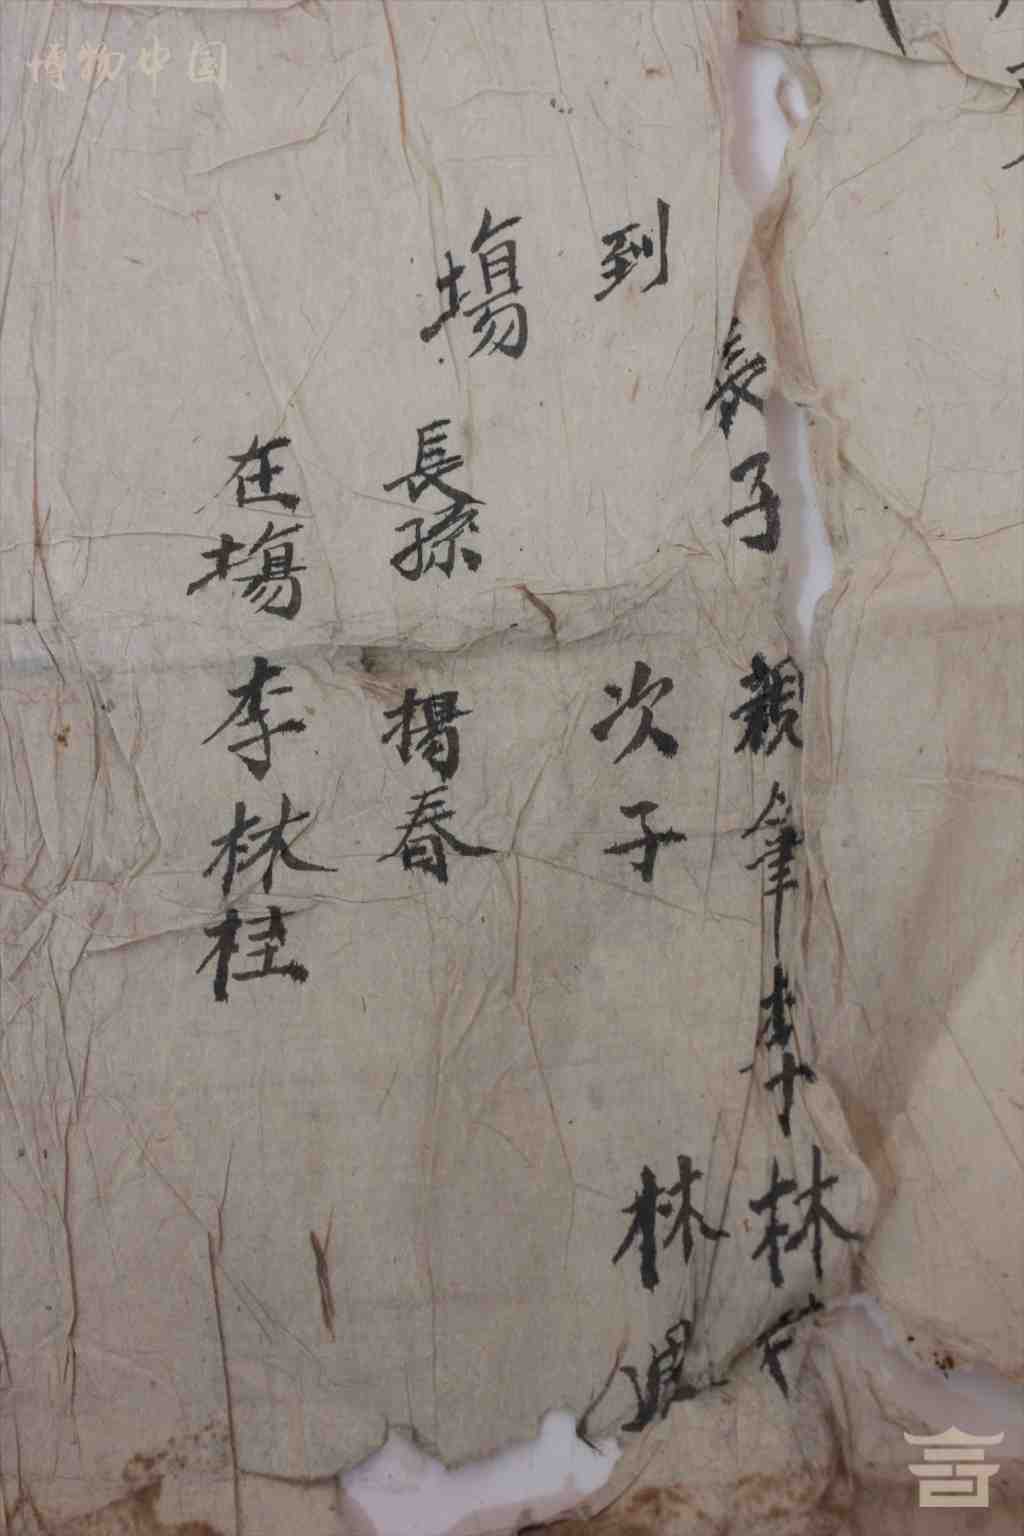 長子 親筆李林
到 次子 林
塲 長孫 揚春
在塲 李林桂
博物中国